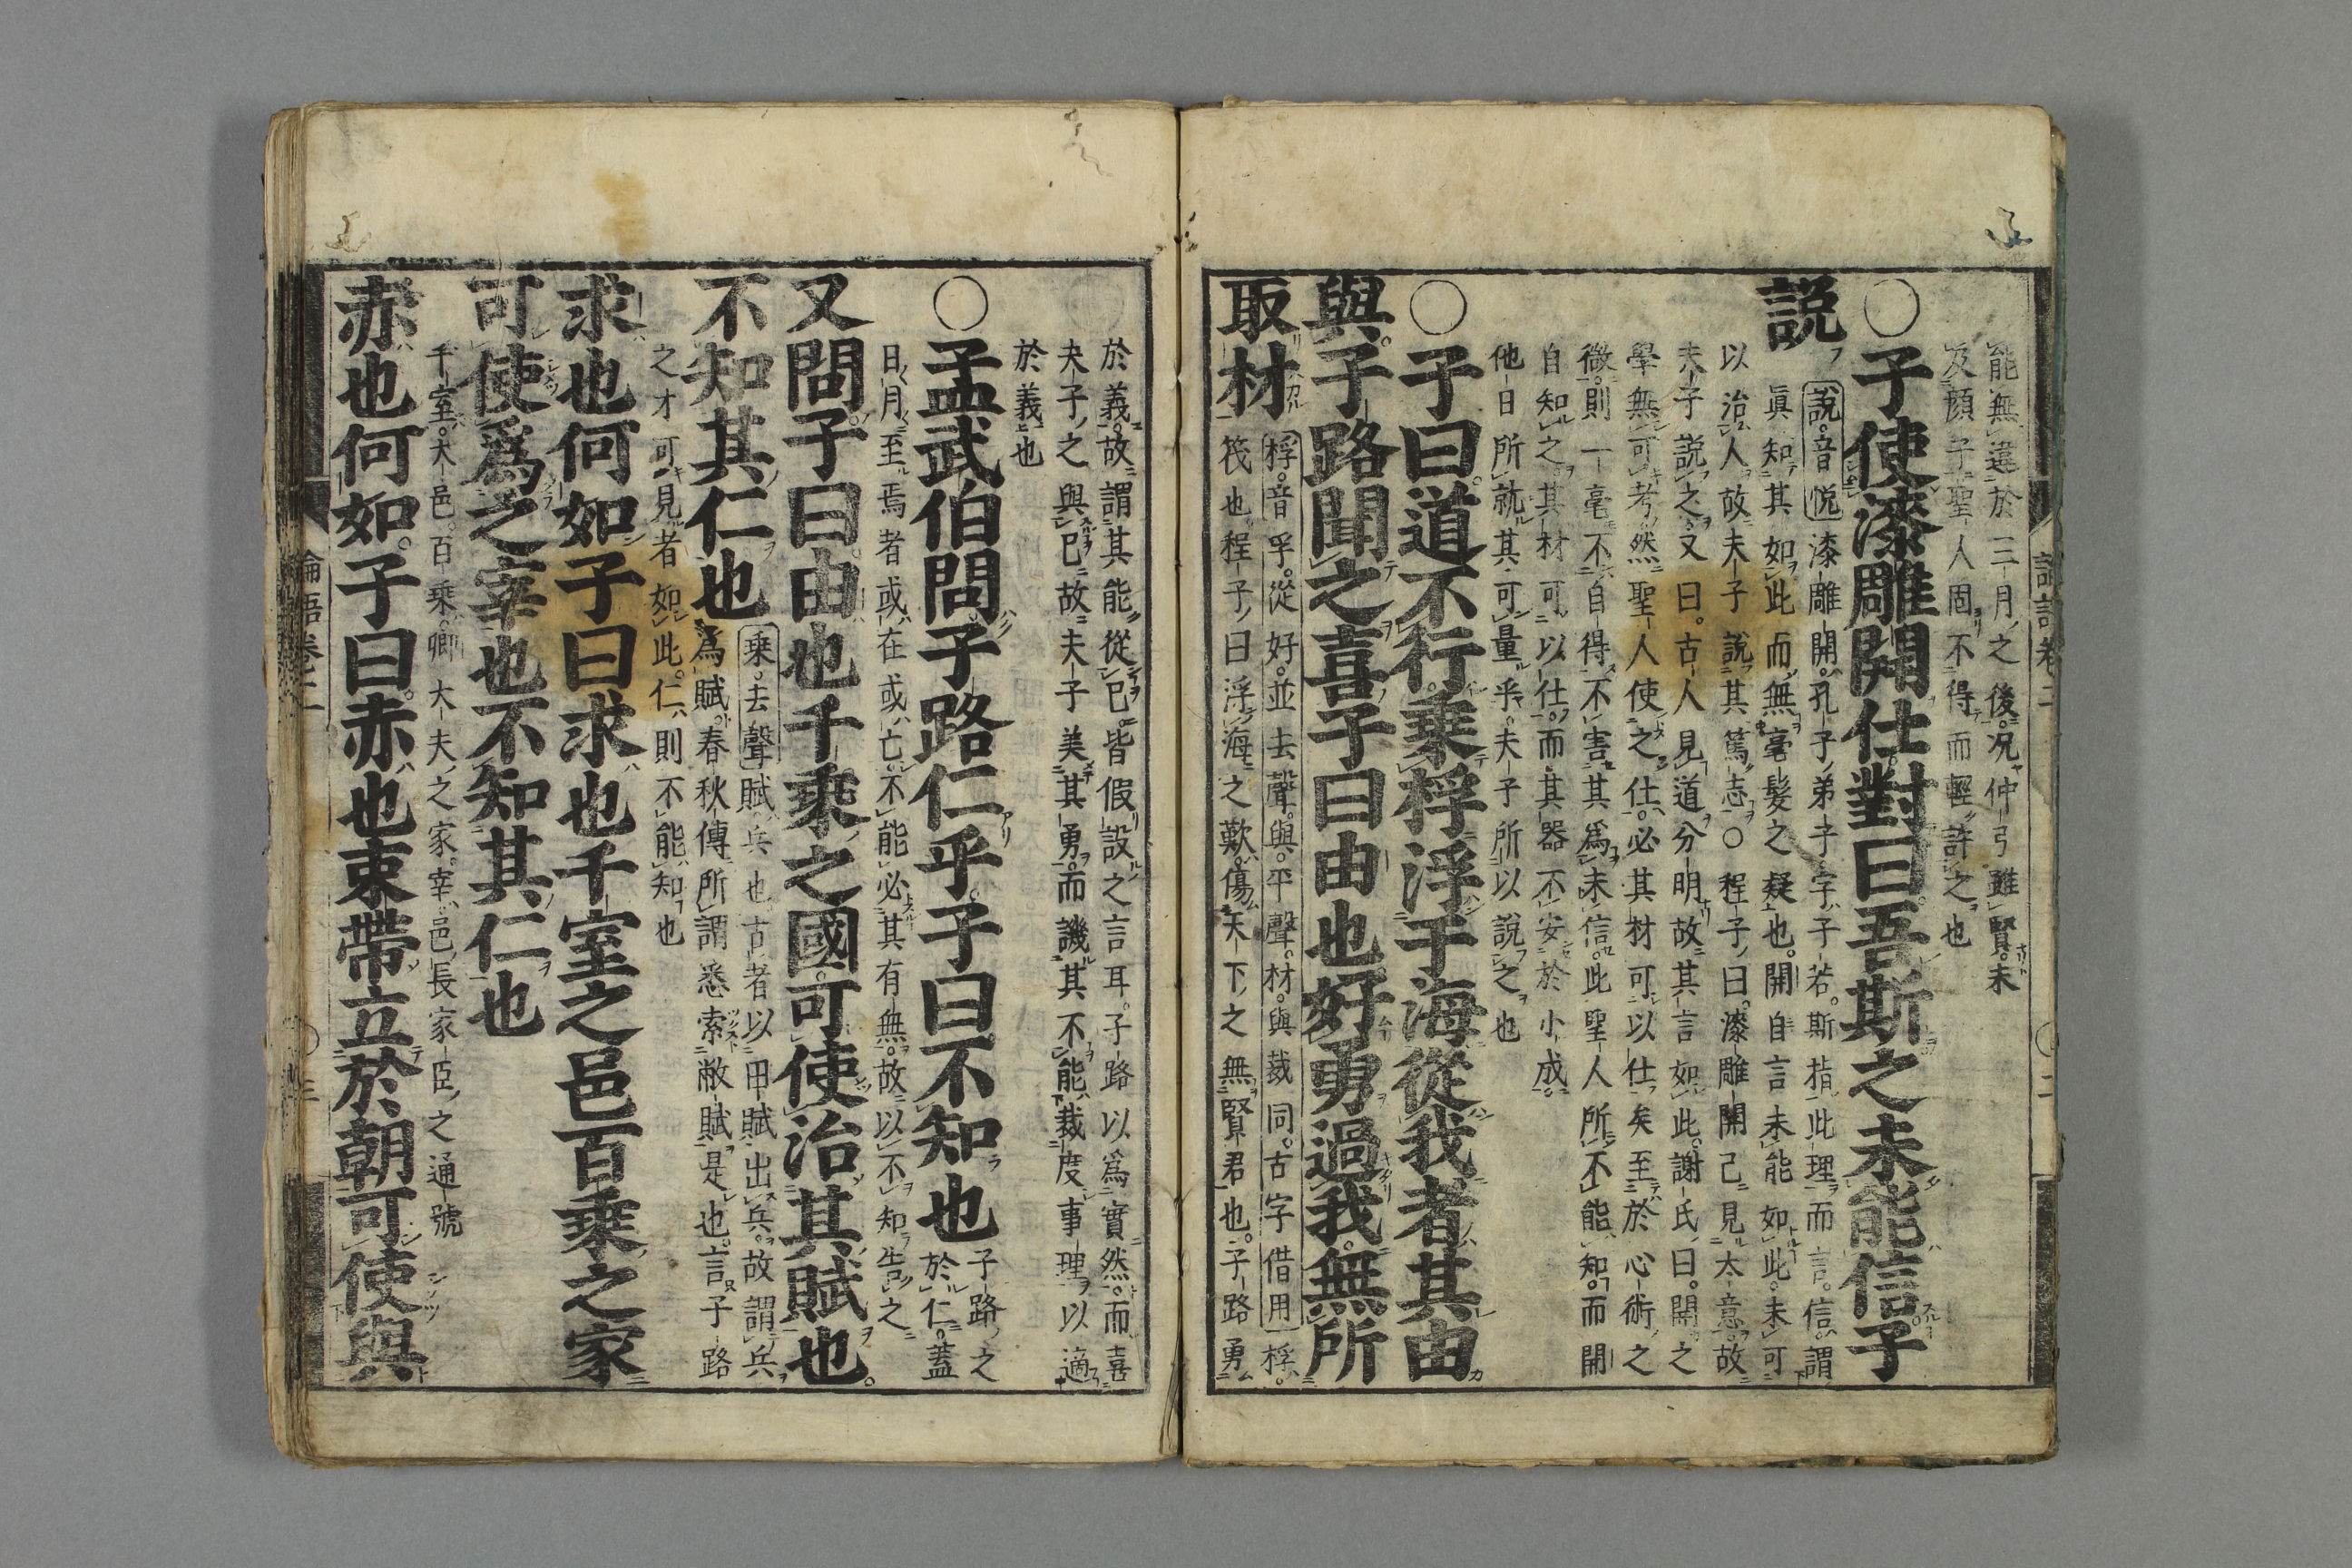 能無違於三月之後况仲弓雖賢未
及顏子聖人固不得而輕許之也
○子使漆雕開仕對曰吾斯之未能信子
説
説音悦漆雕開孔子弟子字子若斯指此理而言信謂
眞知其如此而無毫髮之疑也開自言未能如此未可
以治人故夫子說其篤志○程子曰漆雕開己見大意故
夫子説之又曰古人見道分明故其言如此謝氏曰開之
學無可考然聖人使之仕必其材可以仕矣至於心術之
微則一毫不自得不害其爲未信此聖人所不能知而開
自知之其材可以仕而其器不安於小成
他日所就其可量乎夫子所以說之也
○子曰道不行乘桴浮于海從我者其由
與子路聞之喜子曰由也好勇過我無所
取材
桴音孚從好並去聲與平聲材與裁同古字借用桴
筏也程子曰浮海之歎傷天下之無賢君也子路勇
於義故謂其能從已皆假設之言耳子路以爲實然而喜
夫子之與已故夫子美其勇而譏其不能裁度事理以適
於義也
○孟武伯問子路仁乎子曰不知也
子路之
於仁蓋
日月至焉者或在或亡不能必其有無故以不知告之
又問子曰由也千乘之國可使治其賦也
不知其仁也
乘去聲賦兵也古者以田賦出兵故謂兵
爲賦春秋傳所謂悉索敝賦是也言子路
之才可見者如此仁則不能知也
求也何如子曰求也千室之邑百乘之家
可使爲之宰也不知其仁也
千室大邑百乘卿大夫之家宰邑長家臣之通號
赤也何如子曰赤也束帶立於朝可使與
論語卷二
二
論語卷之二
三